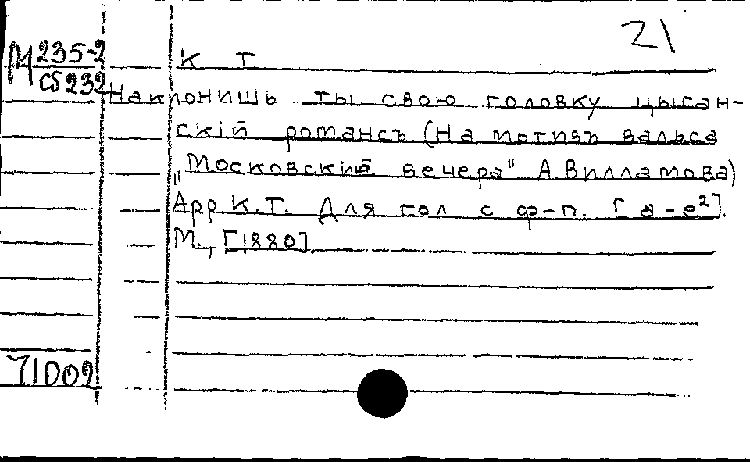 21
М 235-2
CS 232
К Т
Наклонишь ты свою головку цыган-
скій романсъ (На мотивъ вальса
„Московский вечера" А Вилламова)
Арр К.Т. Для гол с ф-п. [a-e²].
М., [1880]
71D09